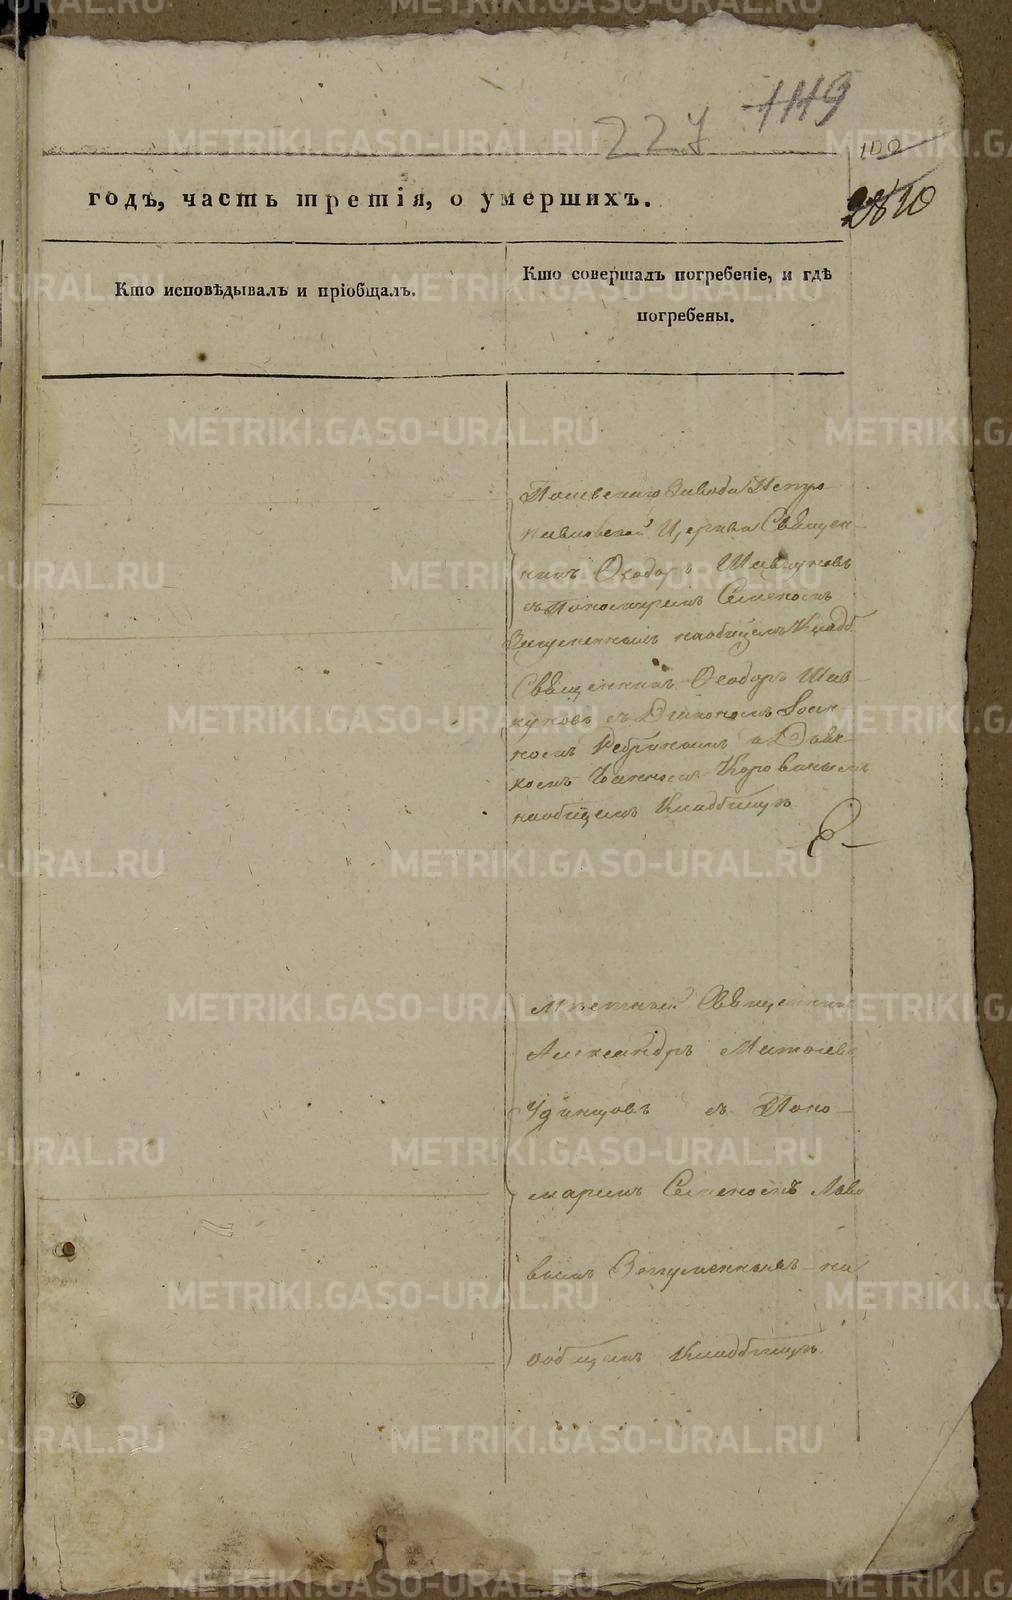 227 1119
100
2810
годъ, часть третія, о умершихъ.
Кто исповѣдывалъ и пріобщалъ.
Кто совершалъ погребеніе, и гдѣ
погребены.
Полевскаго Завода Петро
павловской Церкви Священ-
никъ Ѳеодоръ Шавкуновъ
съ Пономаремъ Семеномъ
наобщемъ Кладб
Священникъ Ѳеодоръ Шав-
куновъ съ Діакономъ Іоан-
номъ и Дьяч-
комъ Коровинымъ
наобщемъ Кладбищѣ
Мѣстный Священникъ
Александръ
Удинцовъ съ Поно-
маремъ Семеномъ
на
общемъ Кладбищѣ
METRIKI.GASO-URAL.RU